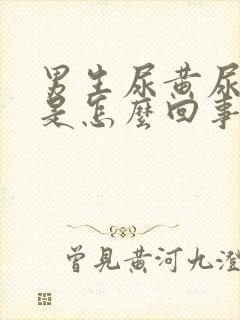 男生尿黄尿
是怎麼回事
曾見黄河九澄